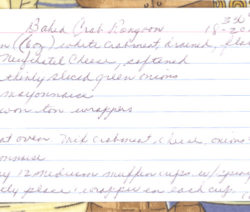 Baked Crab Rangoon
350
15-20
n (6oz) white crabmeat, drained, fla
Neufchatel Cheese, softened
thinly sliced green onions
mayonnaise
won ton wrappers
at oven. Mix crabmeat, cheese, onions
onnaise
y 12 medium muffin cups w/ spray
tly place 1 wrapper in each cup.